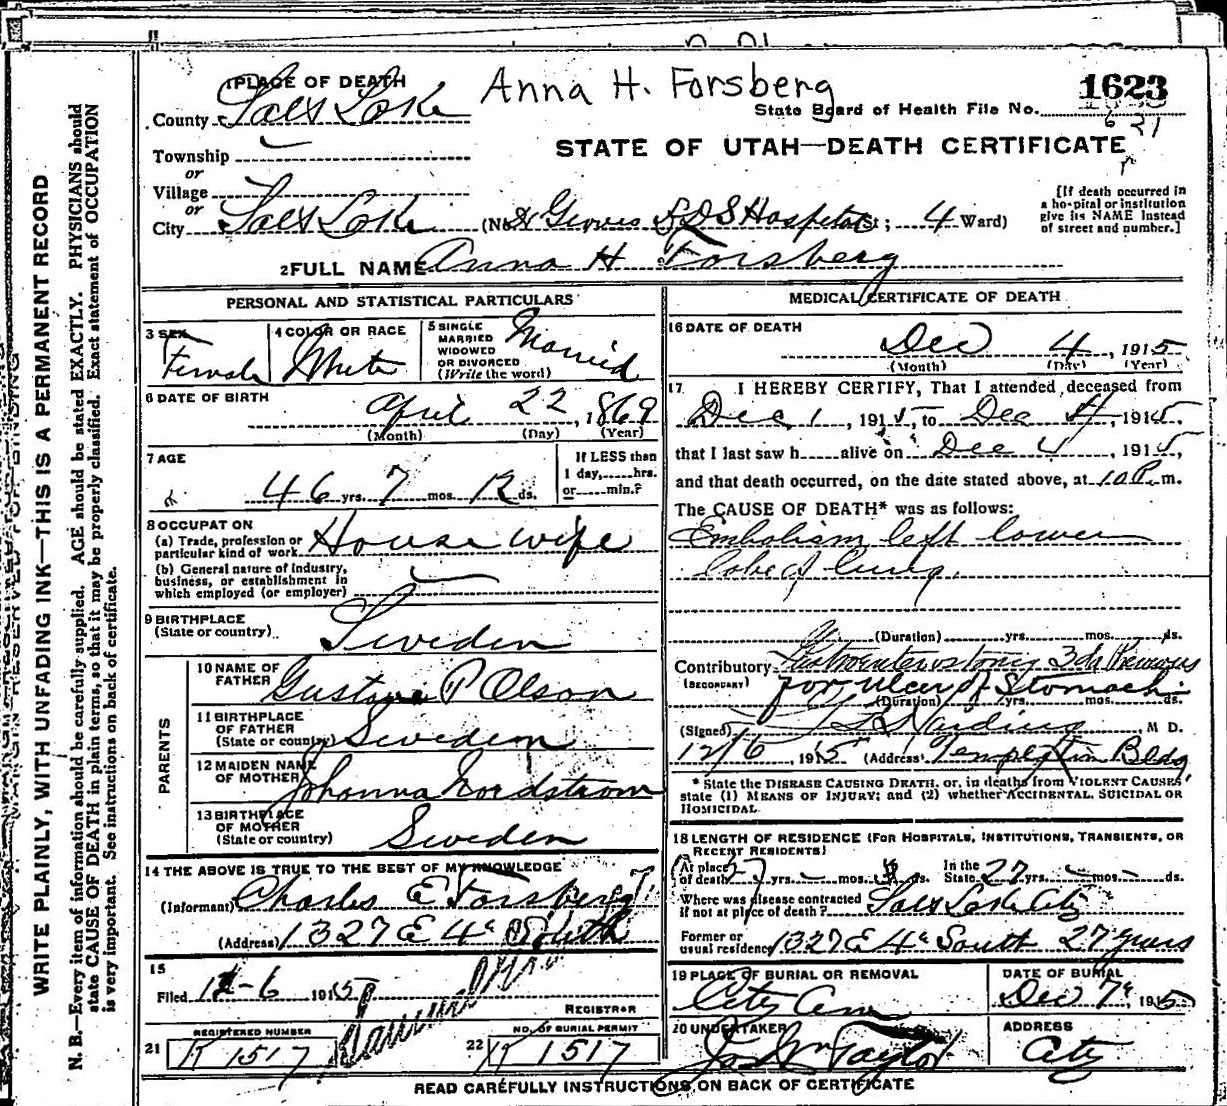 WRITE PLAINLY, WITH UNFADING INK—THIS IS A PERMANENT RECORD
N. B.—Every item of information should be carefully supplied. AGE should be stated EXACTLY. PHYSICIANS should
state CAUSE OF DEATH in plain terms, so that it may be properly classified. Exact statement of OCCUPATION
is very important. See instructions on back of certificate.
Anna H. Forsberg
1623
State Board of Health File No.
STATE OF UTAH—DEATH CERTIFICATE
1 PLACE OF DEATH
County Salt Lake
Township
or
Village
or
City Salt Lake (No. LDS Hospital St; 4 Ward)
[If death occurred in
a hospital or institution
give its NAME instead
of street and number.]
2 FULL NAME Anna H Forsberg
PERSONAL AND STATISTICAL PARTICULARS
3 SEX Female
4 COLOR OR RACE White
5 SINGLE
MARRIED
WIDOWED
OR DIVORCED
(Write the word)
Married
6 DATE OF BIRTH
April 22, 1869
(Month) (Day) (Year)
7 AGE
46 yrs. 7 mos. 12 ds.
If LESS than
1 day,......hrs.
or......min.?
8 OCCUPATION
(a) Trade, profession or
particular kind of work House wife
(b) General nature of industry,
business, or establishment in
which employed (or employer)
9 BIRTHPLACE
(State or country) Sweden
PARENTS
10 NAME OF
FATHER Gustave P Olson
11 BIRTHPLACE
OF FATHER
(State or country) Sweden
12 MAIDEN NAME
OF MOTHER Johanna Nordstrom
13 BIRTHPLACE
OF MOTHER
(State or country) Sweden
14 THE ABOVE IS TRUE TO THE BEST OF MY KNOWLEDGE
(Informant) Charles E Forsberg
(Address) 1327 E 4th South
15
Filed 12-6 1915
REGISTRAR
REGISTERED NUMBER
21 R 1517
NO. OF BURIAL PERMIT
22 R 1517
MEDICAL CERTIFICATE OF DEATH
16 DATE OF DEATH
Dec 4, 1915
(Month) (Day) (Year)
17 I HEREBY CERTIFY, That I attended deceased from
Dec 1, 1915, to Dec 4, 1915,
that I last saw h......alive on Dec 4, 1915,
and that death occurred, on the date stated above, at 10 P. m.
The CAUSE OF DEATH* was as follows:
Embolism left lower
lobe of lung.
(Duration) yrs. mos. ds.
Contributory Gastroenterostomy 3 ds Previous
(SECONDARY) for ulcer of Stomach
(Duration) yrs. mos. ds.
(Signed) Harding M D.
12/6, 1915 (Address) Templeton Bldg
* State the DISEASE CAUSING DEATH, or, in deaths from VIOLENT CAUSES,
state (1) MEANS OF INJURY; and (2) whether ACCIDENTAL, SUICIDAL OR
HOMICIDAL.
18 LENGTH OF RESIDENCE (FOR HOSPITALS, INSTITUTIONS, TRANSIENTS, OR
RECENT RESIDENTS)
At place
of death 27 yrs. mos. ds. In the
State 27 yrs. mos. ds.
Where was disease contracted
if not at place of death? Salt Lake City
Former or
usual residence 1327 E 4th South 27 years
19 PLACE OF BURIAL OR REMOVAL
City Cem
DATE OF BURIAL
Dec 7th, 1915
20 UNDERTAKER
Jos Wm Taylor
ADDRESS
City
READ CAREFULLY INSTRUCTIONS ON BACK OF CERTIFICATE